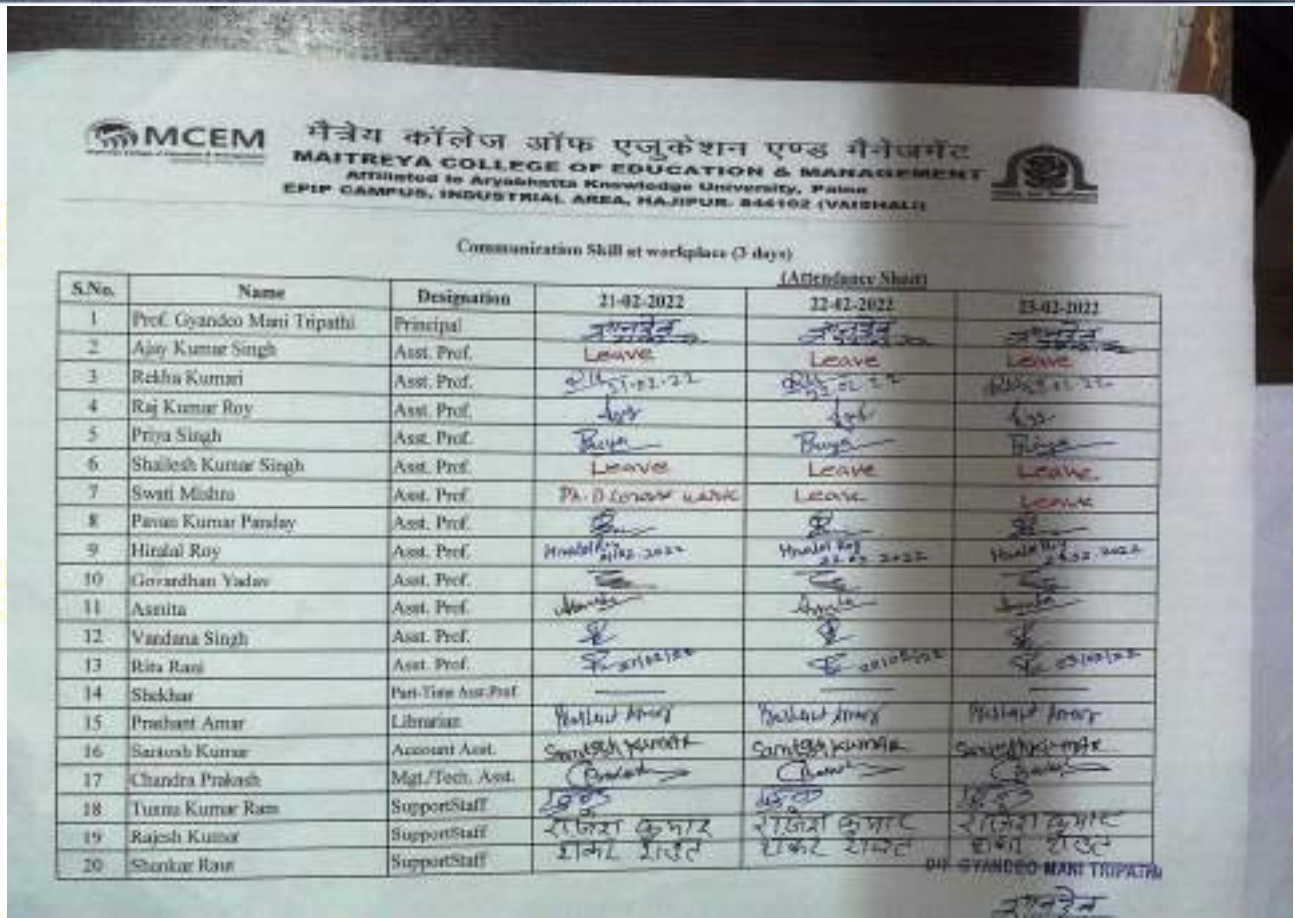 MCEM
मैत्रेय कॉलेज ऑफ एजुकेशन एण्ड मैनेजमेंट
MAITREYA COLLEGE OF EDUCATION & MANAGEMENT
Affiliated to Aryabhatta Knowledge University, Patna
EPIP CAMPUS, INDUSTRIAL AREA, HAJIPUR. 844102 (VAISHALI)
Communication Skill at workplace (3 days)
(Attendance Sheet)
S.No. Name Designation 21-02-2022 22-02-2022 23-02-2022
1 Prof. Gyandeo Mani Tripathi Principal
2 Ajay Kumar Singh Asst. Prof. Leave Leave Leave
3 Rekha Kumari Asst. Prof.
4 Raj Kumar Roy Asst. Prof.
5 Priya Singh Asst. Prof. Priya Priya Priya
6 Shailesh Kumar Singh Asst. Prof. Leave Leave Leave
7 Swati Mishra Asst. Prof. Ph.D Leave Leave
8 Pavan Kumar Panday Asst. Prof.
9 Hiralal Roy Asst. Prof. Hiralal Roy Hiralal Roy Hiralal Roy
10 Govardhan Yadav Asst. Prof.
11 Asmita Asst. Prof.
12 Vandana Singh Asst. Prof.
13 Rita Rani Asst. Prof.
14 Shekhar Part-Time Asst.Prof
15 Prashant Amar Librarian Prashant Amar Prashant Amar Prashant Amar
16 Santosh Kumar Account Asst. Santosh Kumar Santosh Kumar Santosh Kumar
17 Chandra Prakash Mgt./Tech. Asst.
18 Tunnu Kumar Ram SupportStaff
19 Rajesh Kumar SupportStaff राजेश कुमार राजेश कुमार राजेश कुमार
20 Shankar Raut SupportStaff शंकर राउत शंकर राउत शंकर राउत
GYANDEO MANI TRIPATHI